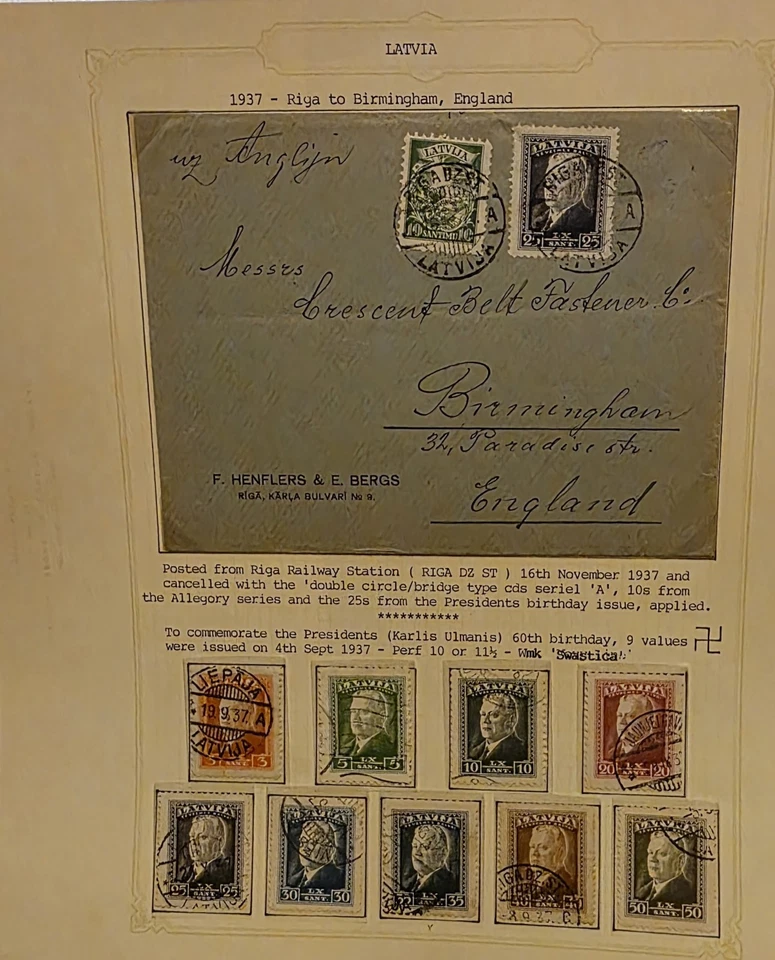 LATVIA
1937 - Riga to Birmingham, England
uz Anglijn
LATVIJA
10 SANTIMU 10
RIGA DZ ST
A
LATVIJA
LATVIJA
25 LX SANT. 25
RIGA DZ ST
A
LATVIJA
Messrs
Crescent Belt Fastener Co:
Birmingham
32, Paradise str.
England
F. HENFLERS & E. BERGS
RĪGĀ, KĀRĻA BULVARĪ № 9.
Posted from Riga Railway Station ( RIGA DZ ST ) 16th November 1937 and
cancelled with the 'double circle/bridge type cds seriel 'A', 10s from
the Allegory series and the 25s from the Presidents birthday issue, applied.
***********
To commemorate the Presidents (Karlis Ulmanis) 60th birthday, 9 values
were issued on 4th Sept 1937 - Perf 10 or 11½ - Wmk 'Swastica'
LIEPĀJA
19.9.37. A
LATVIJA
3
LATVIJA
5 LX SANT. 5
LATVIJA
10 LX SANT. 10
LATVIJA
20 LX SANT. 20
LATVIJA
25 LX SANT. 25
LATVIJA
LATVIJA
30 LX SANT. 30
LATVIJA
LX SANT. 35
LATVIJA
RIGA DZ ST
8.9.37.
LATVIJA
50 LX SANT. 50